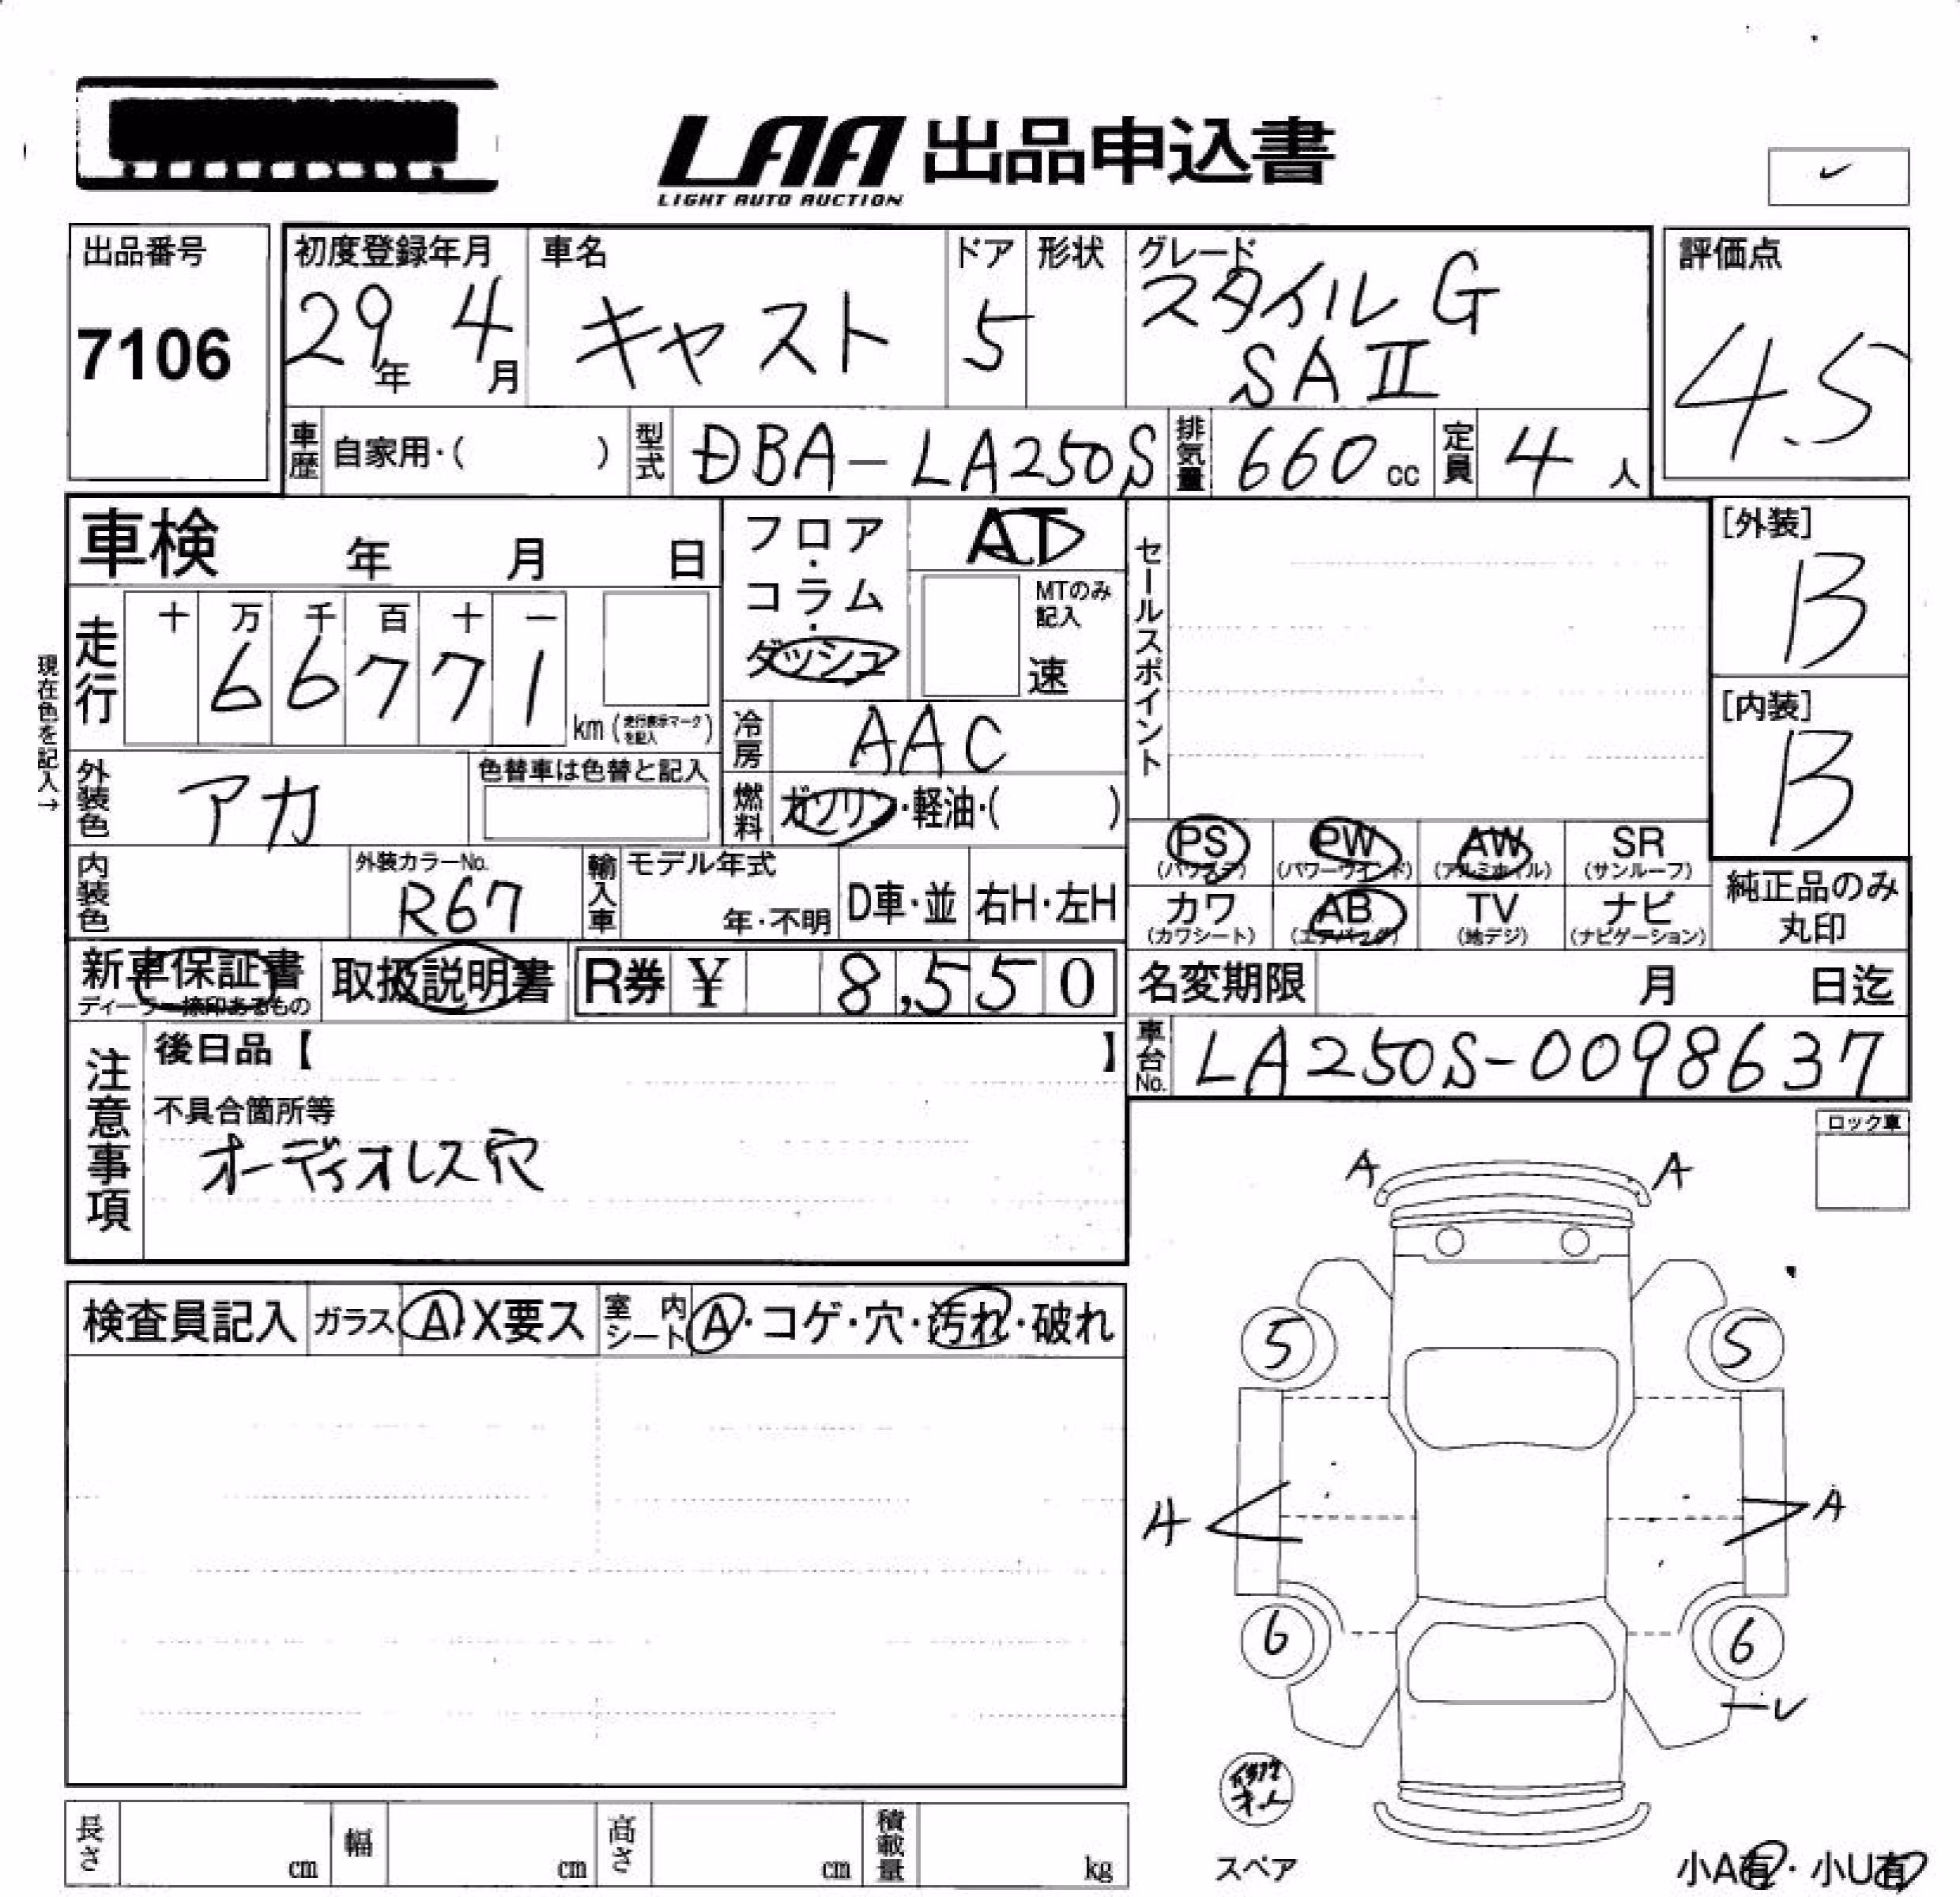 LAA 出品申込書
LIGHT AUTO AUCTION
出品番号
7106
初度登録年月
29年 4月
車名
キャスト
ドア
5
形状
グレード
スタイル G
SAⅡ
評価点
4.5
車歴 自家用・( )
型式 DBA-LA250S
排気量 660 cc
定員 4 人
車検 年 月 日
フロア・コラム・ダッシュ
AT
MTのみ記入
速
セールスポイント
[外装]
B
[内装]
B
現在色を記入→
走行
十 万 千 百 十 一
6 6 7 7 1
km (走行表示マークを記入)
冷房 AAC
外装色 アカ
色替車は色替と記入
燃料 ガソリン・軽油・( )
内装色
外装カラーNo.
R67
輸入車
モデル年式
年・不明
D車・並
右H・左H
PS (パワステ)
PW (パワーウインド)
AW (アルミホイル)
SR (サンルーフ)
カワ (カワシート)
AB (エアバッグ)
TV (地デジ)
ナビ (ナビゲーション)
純正品のみ丸印
新車保証書
ディーラー捺印あるもの
取扱説明書
R券 ¥ 8,550
名変期限 月 日迄
車台No. LA250S-0098637
注意事項
後日品【 】
不具合箇所等
オーディオレス穴
ロック車
A A
5 5
A A
6 6
検査員記入
ガラス A・X要ス
室内シート A・コゲ・穴・汚れ・破れ
長さ cm
幅 cm
高さ cm
積載量 kg
スペア
小A有・小U有